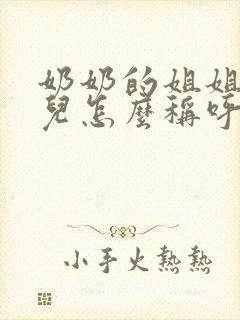 奶奶的姐姐
兒怎麼稱呼
小手火熱熱